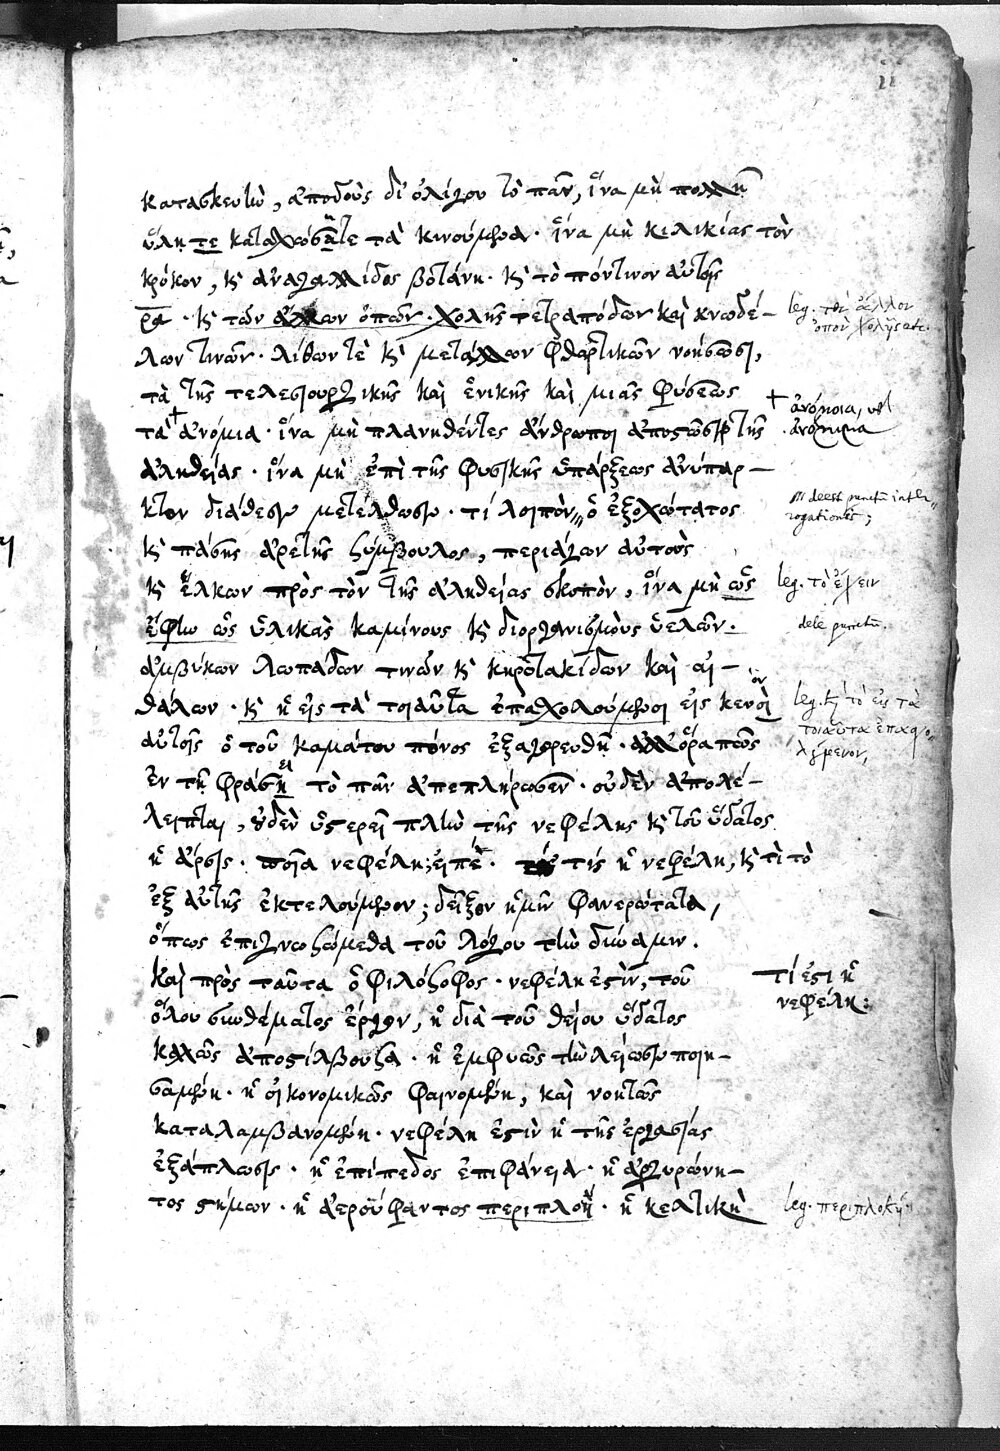 11
κατασκευὴν, ἀποδοὺς δι' ὀλίγου τὸ πᾶν, ἵνα μὴ πολλῇ
ὕλῃ τε καταχώσητε τὰ κινούμενα. ἵνα μὴ κιλικίας τὸν
κρόκον, κ ἀναγαλλίδος βοτάνη. κ τὸ πόντινον αὐτοῖς
ρα. κ τῶν ἄλλων ὀπῶν. χολῆς τετραπόδων καὶ κνωδά-
λων τινῶν. λίθων τὲ κ μετάλλων φθαρτικῶν νοήσωσι,
τὰ τῆς τελεσιουργικῆς καὶ ἑνικῆς καὶ μιᾶς φύσεως
τὰ + ἀνόμια. ἵνα μὴ πλανηθέντες ἄνθρωποι ἀποστῶσι τῆς
ἀληθείας. ἵνα μὴ ἐπὶ τῆς φυσικῆς ὑπάρξεως ἀνύπαρ-
κτον διάθεσιν μετέλθωσιν. τί λοιπὸν ὁ ἐξοχώτατος
κ πάσης ἀρετῆς σύμβουλος, περιάγων αὐτοὺς
κ ἕλκων πρὸς τὸν τῆς ἀληθείας σκοπὸν, ἵνα μὴ ὡς
ἔφην ὡς ὑλικὰς καμίνους κ διοργανισμοὺς ὑελῶν.
ἀμβύκων λωπάδων τινῶν κ κηροτακίδων καὶ αἰ-
θάλων. κ ἢ εἰς τὰ τοιαῦτα ἐπασχολούμενοι εἰς κενὸν
αὐτοῖς ὁ τοῦ καμάτου πόνος ἐξαγορευθῇ. ἀλλ' ὅρα πῶς
ἐν τῇ φράσει τὸ πᾶν ἀπεπλήρωσεν. οὐδὲν ἀπολέ-
λειπται, οὐδὲν ὑστερεῖ πλὴν τῆς νεφέλης κ τοῦ ὕδατος
ἡ ἄρσις. ποῖα νεφέλη; εἰπὲ. τίς ἡ νεφέλη, κ τὶ τὸ
ἐξ αὐτῆς ἐκτελούμενον; δεῖξον ἡμῖν φανερώτατα,
ὅπως ἐπιγνωσώμεθα τοῦ λόγου τὴν δύναμιν.
καὶ πρὸς ταῦτα ὁ φιλόσοφος. νεφέλη ἐστὶν, τοῦ
ὅλου συνθέματος ἔργον, ἡ διὰ τοῦ θείου ὕδατος
καλῶς ἀποστίλβουσα. ἡ ἐμφυῶς τὴν λείωσιν ποιη-
σαμένη. ἡ οἰκονομικῶς φαινομένη, καὶ νοητῶς
καταλαμβανομένη. νεφέλη ἐστὶν ἡ τῆς ἐργασίας
ἐξάπλωσις. ἡ ἐπίπεδος ἐπιφάνεια. ἡ ἀργυρώνη-
τος στήμων. ἡ ἀερόϋφαντος περιπλοὴ. ἡ κελτικὴ
leg. τῶν ἄλλων
ὀπὸν χολῆς etc.
+ ἀνόμοια, vel
ἀνόμημα
hic deest punctu inter
rogationis;
leg. τὸ ἔχειν
dele punctu.
leg. κ τὸ εἰς τὰ
τοιαῦτα ἐπασχο-
λούμενον,
τί ἐστι ἡ
νεφέλη:
leg. περιπλοκή